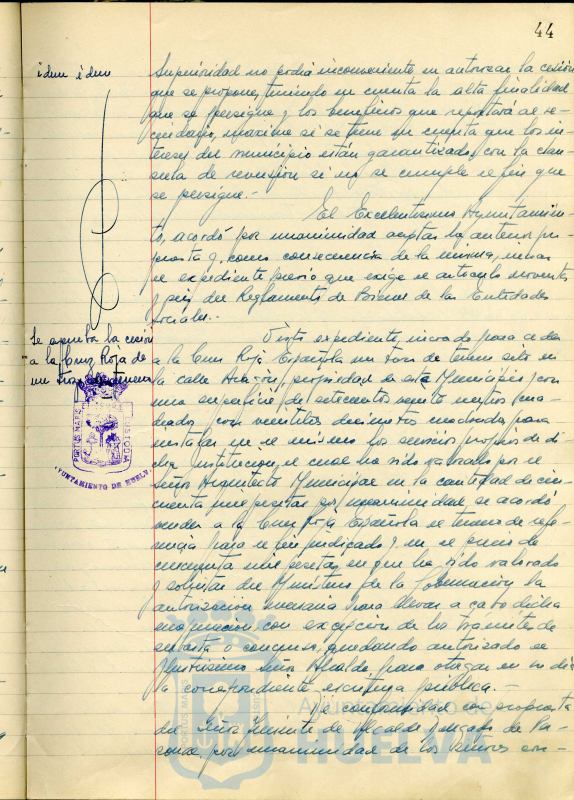 44
idem idem
Superioridad no podrá inconveniente en autorizar la cesión
que se propone, teniendo en cuenta la alta finalidad
que se persigue y los beneficios que reportará al ve-
cindario, máxime si se tiene en cuenta que los in-
tereses del municipio están garantizados con la cláu-
sula de reversión si no se cumple el fin que
se persigue.-
El Excelentísimo Ayuntamien-
to, acordó por unanimidad aceptar la anterior pro-
puesta y, como consecuencia de la misma, iniciar
el expediente previo que exige el artículo noventa
y seis del Reglamento de Bienes de las Entidades
Locales.-
Se aprueba la cesión
a la Cruz Roja de
un trozo de terreno
Visto expediente, incoado para ceder
a la Cruz Roja Española un trozo de terreno sito en
la calle Aragón, propiedad de este Municipio, con
una superficie de setecientos veinte metros cua-
drados, con decímetros cuadrados, para
instalar en el mismo los servicios propios de di-
cha Institución, el cual ha sido valorado por el
Señor Arquitecto Municipal en la cantidad de cin-
cuenta mil pesetas, por unanimidad se acordó
vender a la Cruz Roja Española el terreno de refe-
rencia para el fin indicado y en el precio de
cincuenta mil pesetas en que ha sido valorado
y solicitar del Ministerio de la Gobernación la
autorización necesaria para llevar a cabo dicha
enajenación con excepción de los trámites de
subasta o concurso, quedando autorizado el
Ilustrísimo Señor Alcalde para otorgar en su día
la correspondiente escritura pública.-
De conformidad con propuesta
del Señor Teniente de Alcalde Delegado de Per-
sonal, por unanimidad de los Señores con-
PORTUS MARIS
CUSTODIA
AYUNTAMIENTO DE HUELVA
Ayuntamiento de
HUELVA